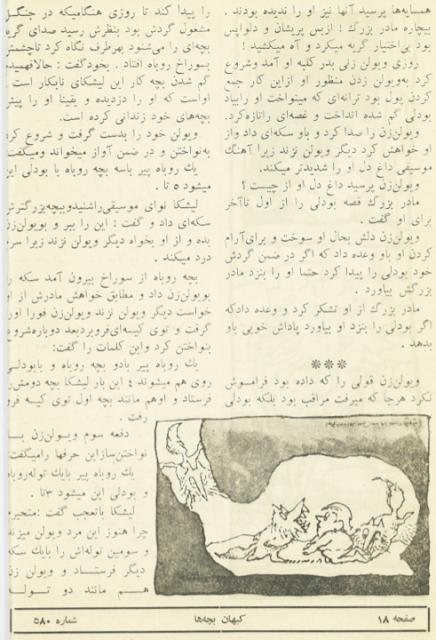 همسایه‌ها پرسید آنها نیز او را ندیده بودند .
بیچاره مادر بزرك ! ازبس پریشان و دلواپس
بود بی‌اختیار گریه میکرد و آه میکشید !
روزی ویولن زنی بدر کلبه او آمد وشروع
کرد به‌ویولن زدن منظور او ازاین کار جمع
کردن پول بود ترانه‌ای که مینواخت او رابیاد
بودلی گم شده انداخت و غصه‌ای راتازه‌کرد.
ویولن‌زن را صدا کرد و باو سکه‌ای داد واز
او خواهش کرد دیگر ویولن نزند زیرا آهنگ
موسیقی داغ دل او را شدیدتر میکند.
ویولن‌زن پرسید داغ دل او از چیست ؟
مادر بزرگ قصه بودلی را از اول تاآخر
برای او گفت .
ویولن‌زن دلش بحال او سوخت و برای‌آرام
کردن او باو وعده داد که اگر در ضمن گردش
خود بودلی را پیدا کرد حتما او را بنزد مادر
بزرگش بیاورد .
مادر بزرك از او تشکر کرد و وعده دادکه
اگر بودلی را بنزد او بیاورد پاداش خوبی باو
بدهد .
***
ویولن‌زن قولی را که داده بود فرامـوش
نکرد هرجا که میرفت مراقب بود بلکه بودلی
را پیدا کند تا روزی هنگامیکه در جنگـل
مشغول گردش بود بنظرش رسید صدای گریه
بچه‌ای را می‌شنود بهرطرف نگاه کرد تاچشمش
بسوراخ روباه افتاد . بخودگفت : حالافهمیدم
گم شدن بچه کار این لیشکای نابکار است .
اواست که او را دزدیده و یقینا او را پیش
بچه‌های خود زندانی کرده است.
ویولن خود را بدست گرفت و شروع کرد
به‌نواختن و در ضمن آواز میخواند ومیگفت:
یك روباه پیر باسه بچه روباه با بودلی این
میشود ۵ تا .
لیشکا نوای موسیقی‌راشنیدوببچه‌بزرگترش
سکه‌ای داد و گفت : این را ببر و بویولن‌زن
بده و از او بخواه دیگر ویولن نزند زیرا سرم
درد میکند .
بچه روباه از سوراخ بیرون آمد سکه را
بویولن‌زن داد و مطابق خواهش مادرش از او
خواست دیگر ویولن نزند ویولن‌زن فورا اورا
گرفت و توی کیسه‌ای‌فروبردبعد دوباره‌شروع
بنواختن کرد واین کلمات را گفت:
یك روباه پیر بادو بچه روباه و بابودلـی
روی هم میشوند ۴ این بار لیشکا بچه دومش‌را
فرستاد و اوهم مانند بچه اول توی کیسه فرو
رفت .
دفعه سوم ویـولن‌زن بـا
نواختن‌سازاین حرفها رامیگفت:
یك روباه پیر بایك توله‌روباه
و بودلی این میشود ۳تا .
لیشکا باتعجب گفت :متحیرم
چرا هنوز این مرد ویولن میزند
و سومین توله‌اش را بایك سکه
دیگر فرستـاد و ویولن زن
هـم مانند دو تولـه
صفحه ۱۸
کیهان بچه‌ها
شماره ۵۸۰